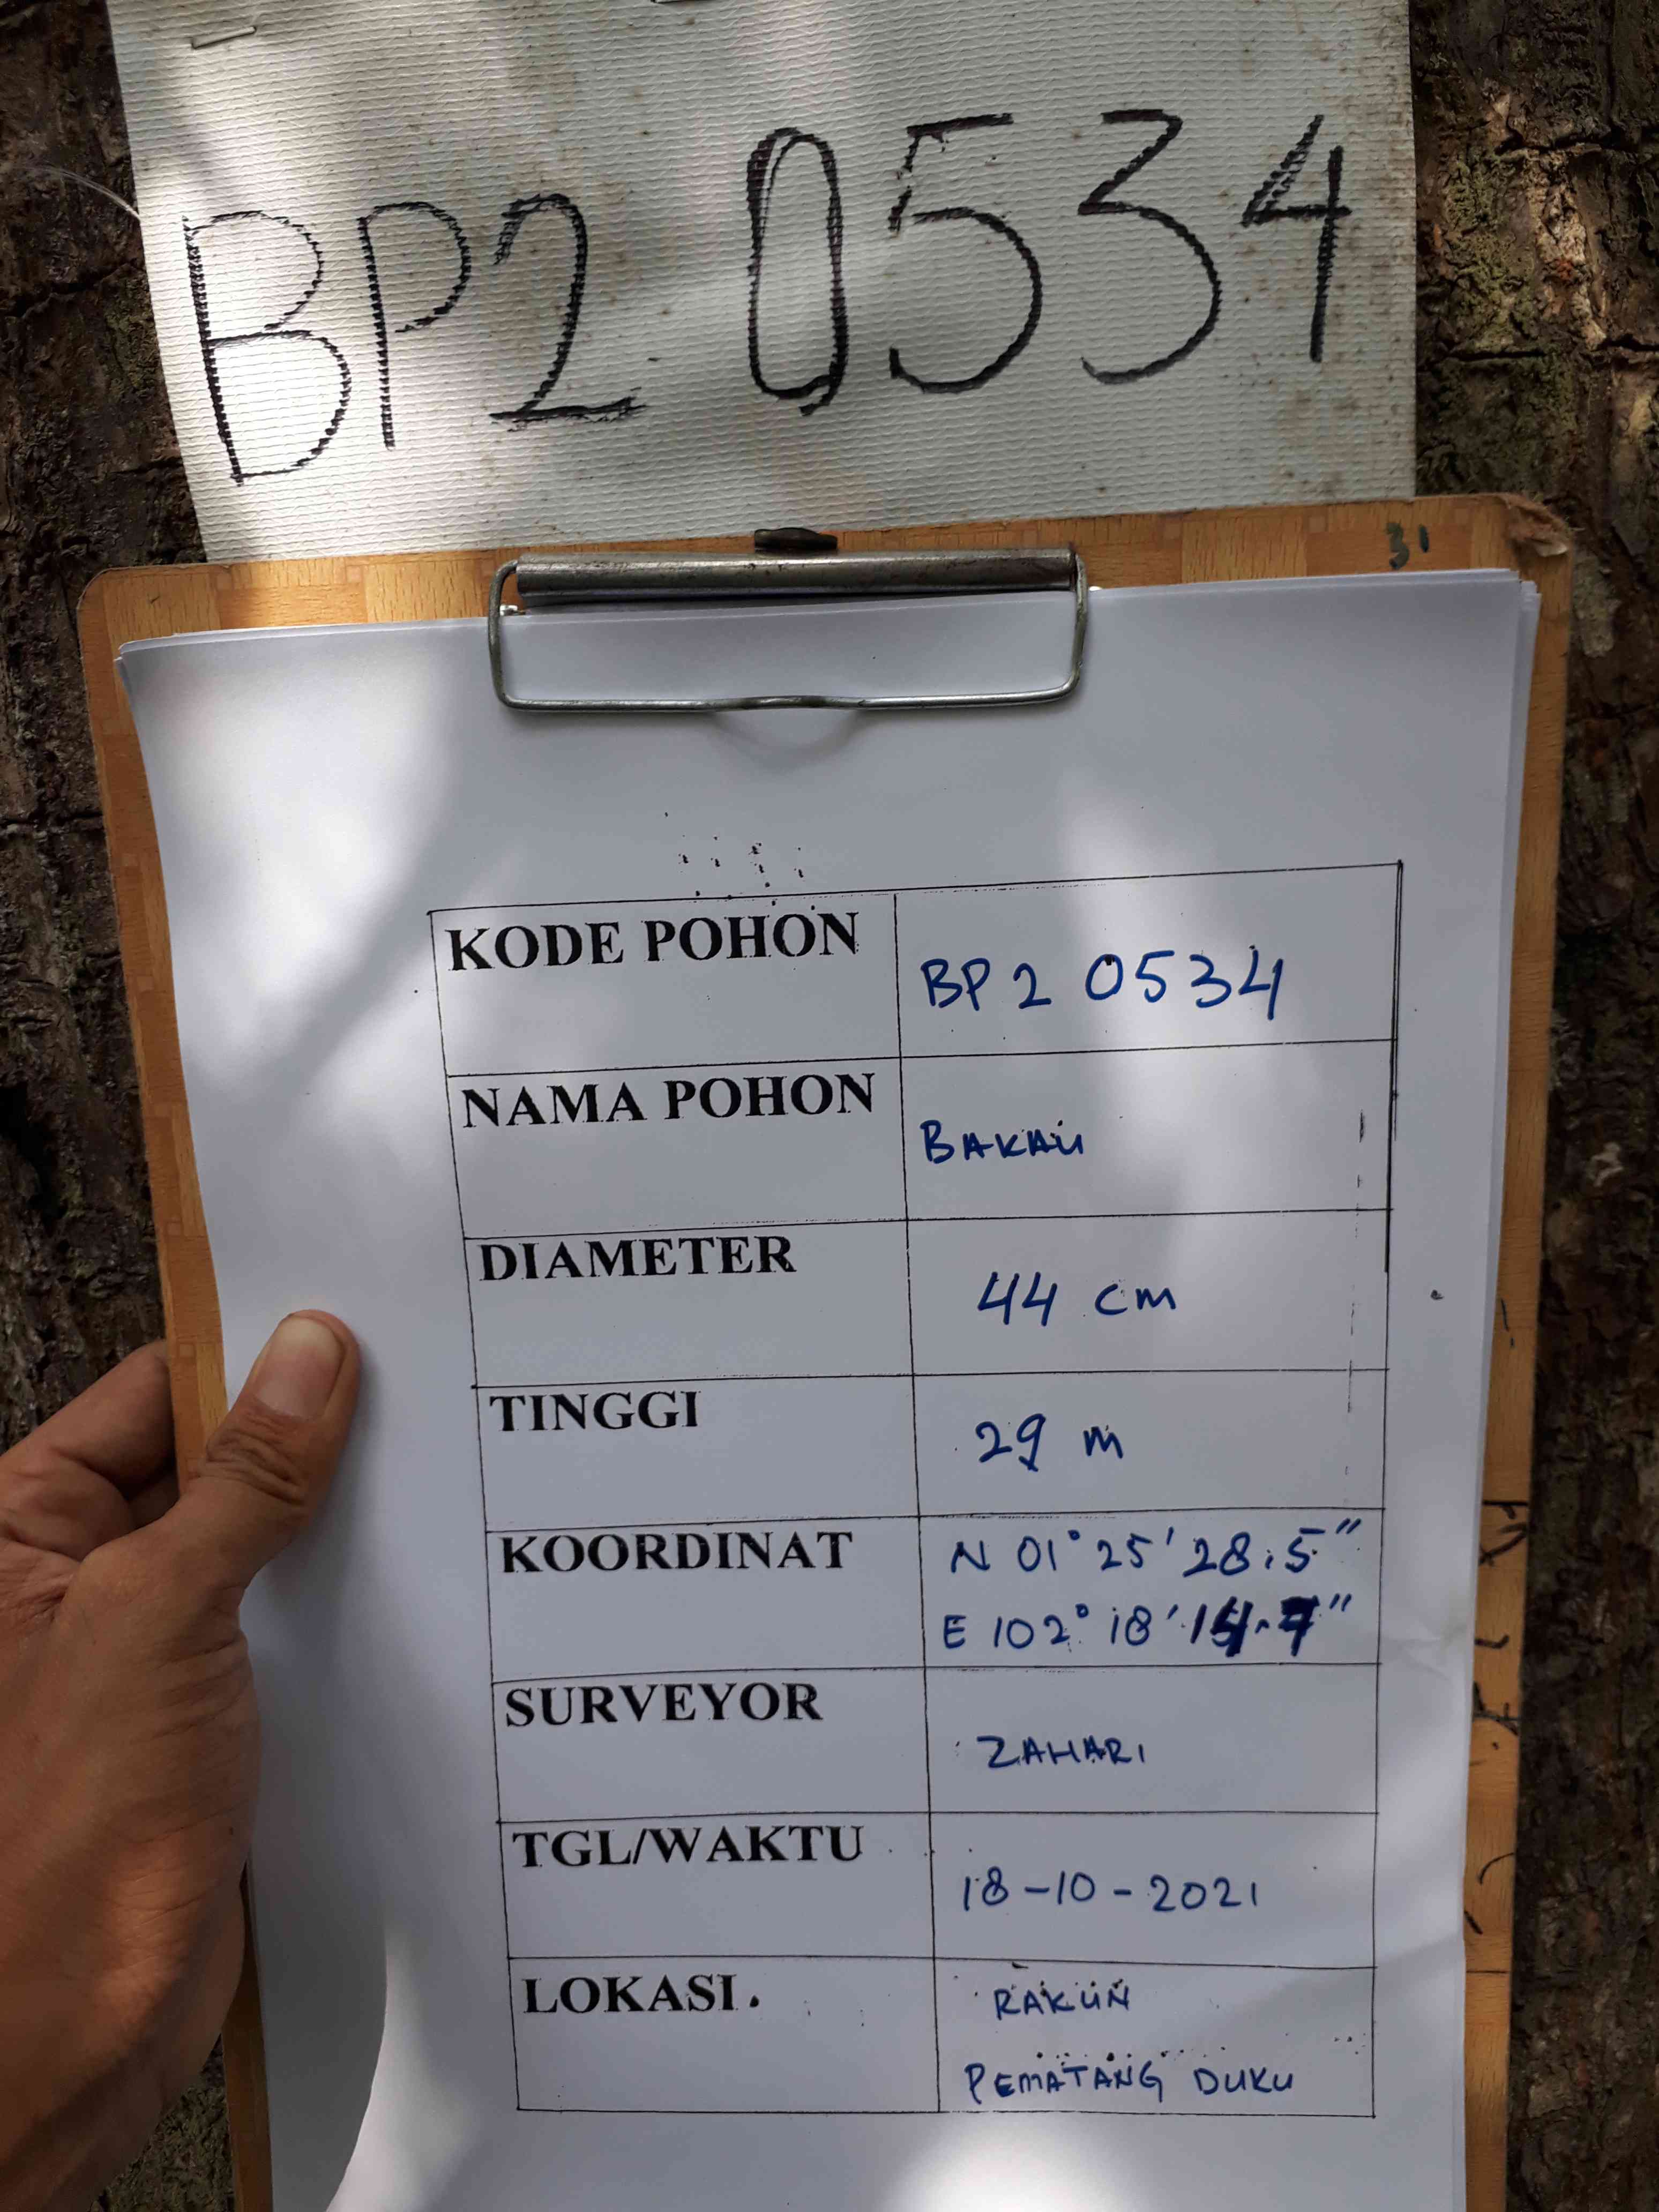 BP2 0534
31
KODE POHON
BP2 0534
NAMA POHON
BAKAU
DIAMETER
44 cm
TINGGI
29 m
KOORDINAT
N 01° 25' 28.5"
E 102° 18' 14.7"
SURVEYOR
ZAHARI
TGL/WAKTU
18-10-2021
LOKASI.
RAKUN
PEMATANG DUKU